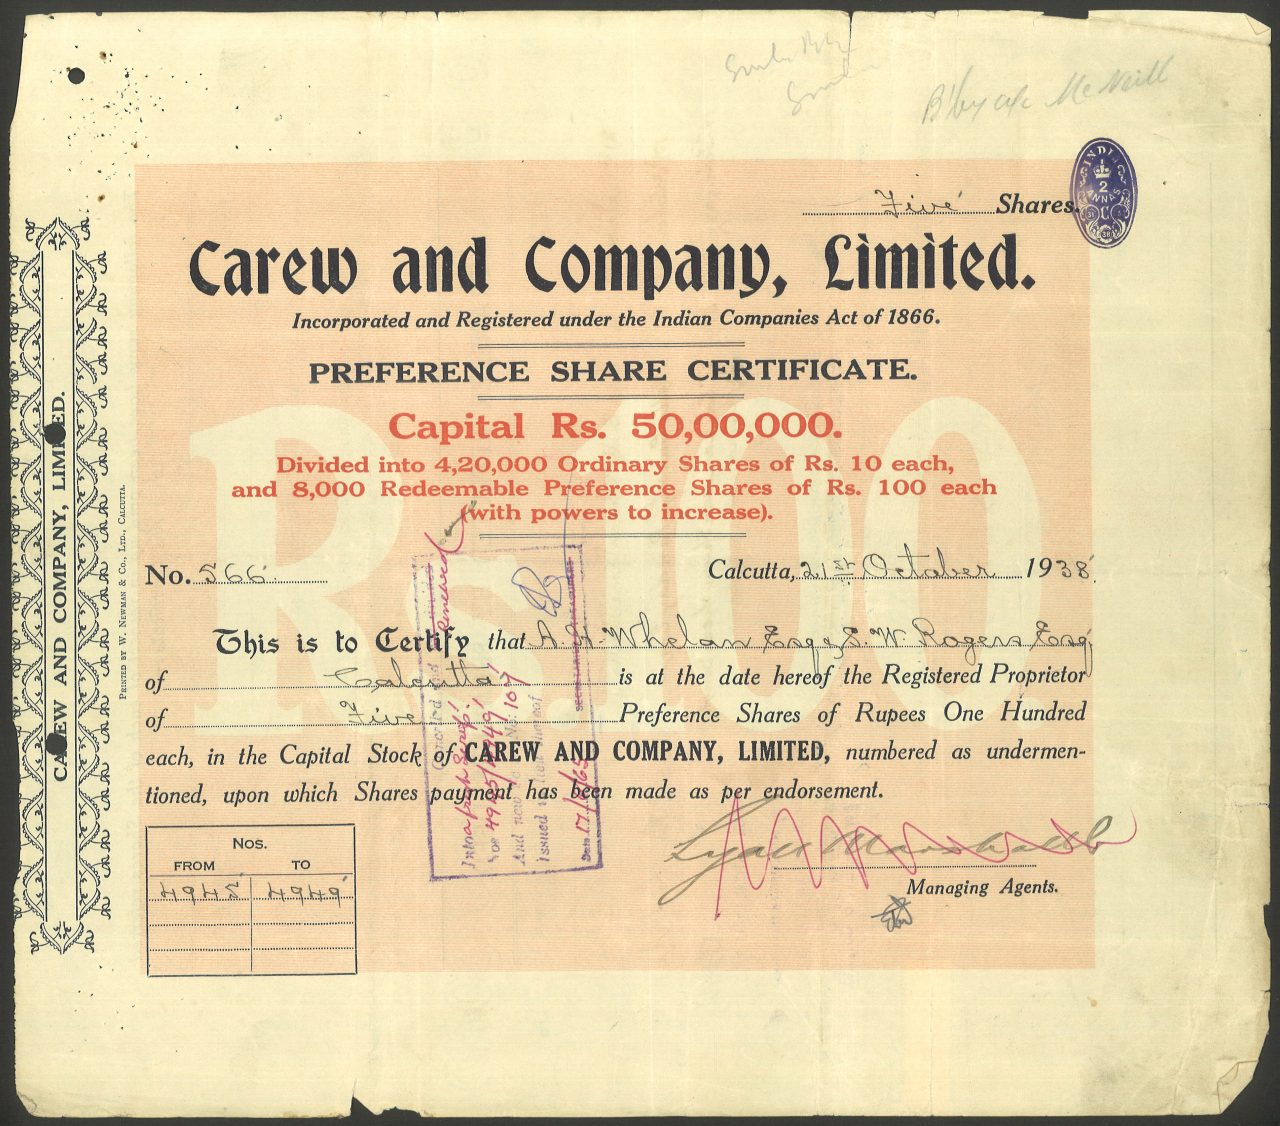 B'bay a/c McNeill
INDIA
2
ANNAS
Five Shares.
Carew and Company, Limited.
Incorporated and Registered under the Indian Companies Act of 1866.
PREFERENCE SHARE CERTIFICATE.
Capital Rs. 50,00,000.
Divided into 4,20,000 Ordinary Shares of Rs. 10 each,
and 8,000 Redeemable Preference Shares of Rs. 100 each
(with powers to increase).
Rs.100
No. 566. Calcutta, 21st October 1938
This is to Certify that A. A. Whelan Esq, S. W. Rogers Esq
of Calcutta is at the date hereof the Registered Proprietor
of Five Preference Shares of Rupees One Hundred
each, in the Capital Stock of CAREW AND COMPANY, LIMITED, numbered as undermen-
tioned, upon which Shares payment has been made as per endorsement.
Lyall Marshall &
Managing Agents.
Nos.
FROM TO
4945 4949
CAREW AND COMPANY, LIMITED.
PRINTED BY W. NEWMAN & CO., LTD., CALCUTTA.
Renewed
Into a fresh Scrip
Nos 4945/4949
And now No. 107
Issued
Date 17/1/65